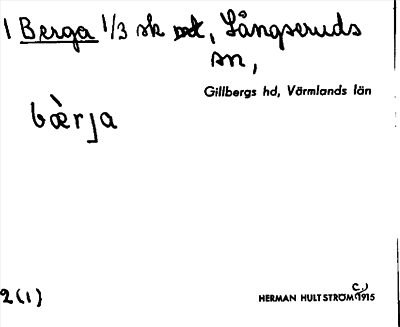 1 Berga 1/3 sk, Långseruds
sn,
Gillbergs hd, Värmlands län
bæ̀rja
2(1)
HERMAN HULTSTRÖM (C.) 1915